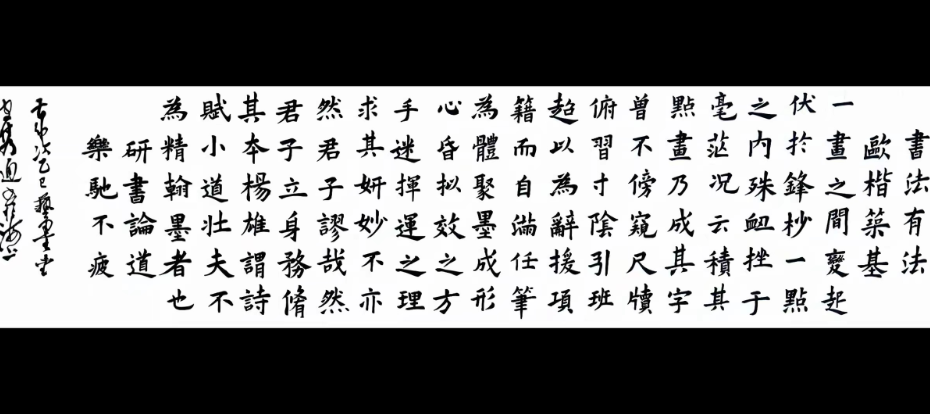 書法有法
歐楷築基
一畫之間變起
伏於鋒杪一點
之內殊衄挫于
毫茫况云積其
點畫乃成其字
曾不傍窺尺牘
俯習寸陰引班
超以為辭援項
籍而自滿任筆
為體聚墨成形
心昏拟效之方
手迷揮運之理
求其妍妙不亦
然君子謬哉然
君子立身務脩
其夲楊雄謂詩
賦小道壯夫不
為精翰墨者也
研書論道
樂馳不疲